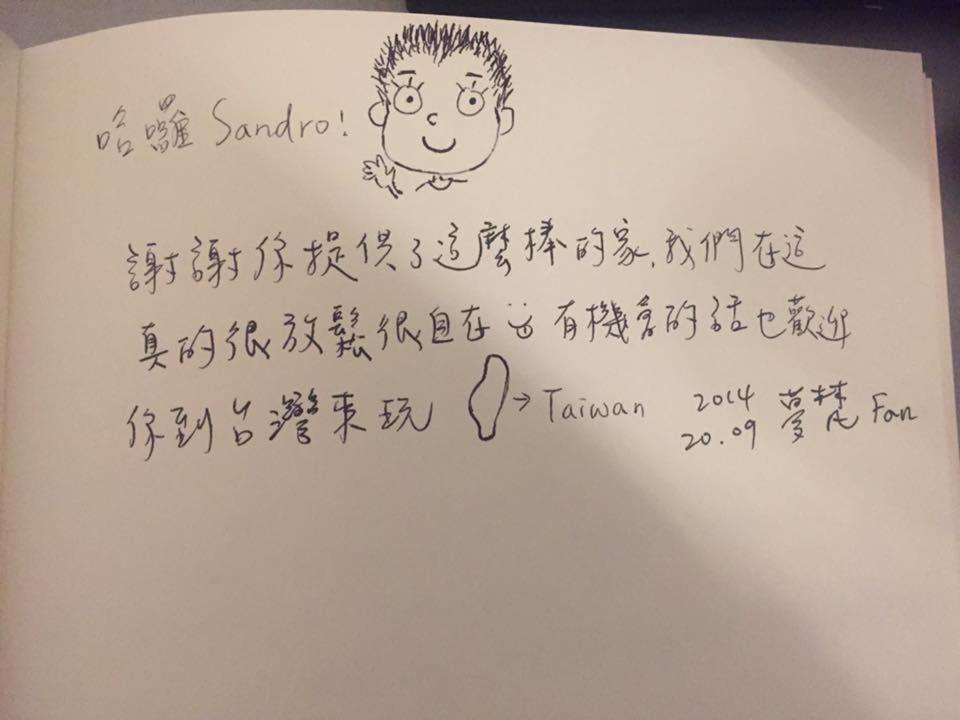 哈囉 Sandro!
謝謝你提供了這麼棒的家,我們在這
真的很放鬆很自在 有機會的話也歡迎
你到台灣來玩 → Taiwan 2014 夢梵 Fan
20.09